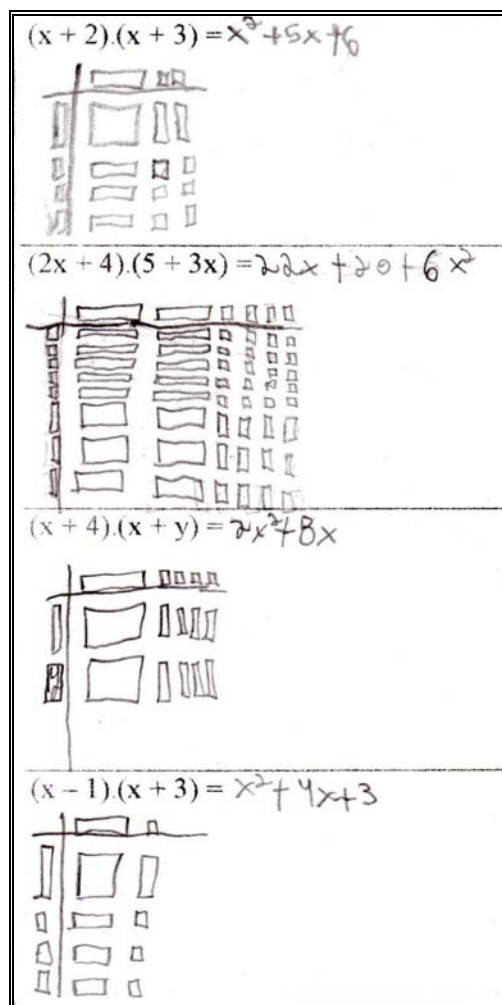 (x + 2).(x + 3) = x² + 5x + 6
(2x + 4).(5 + 3x) = 22x + 20 + 6x²
(x + 4).(x + y) = 2x² + 8x
(x – 1).(x + 3) = x² + 4x + 3